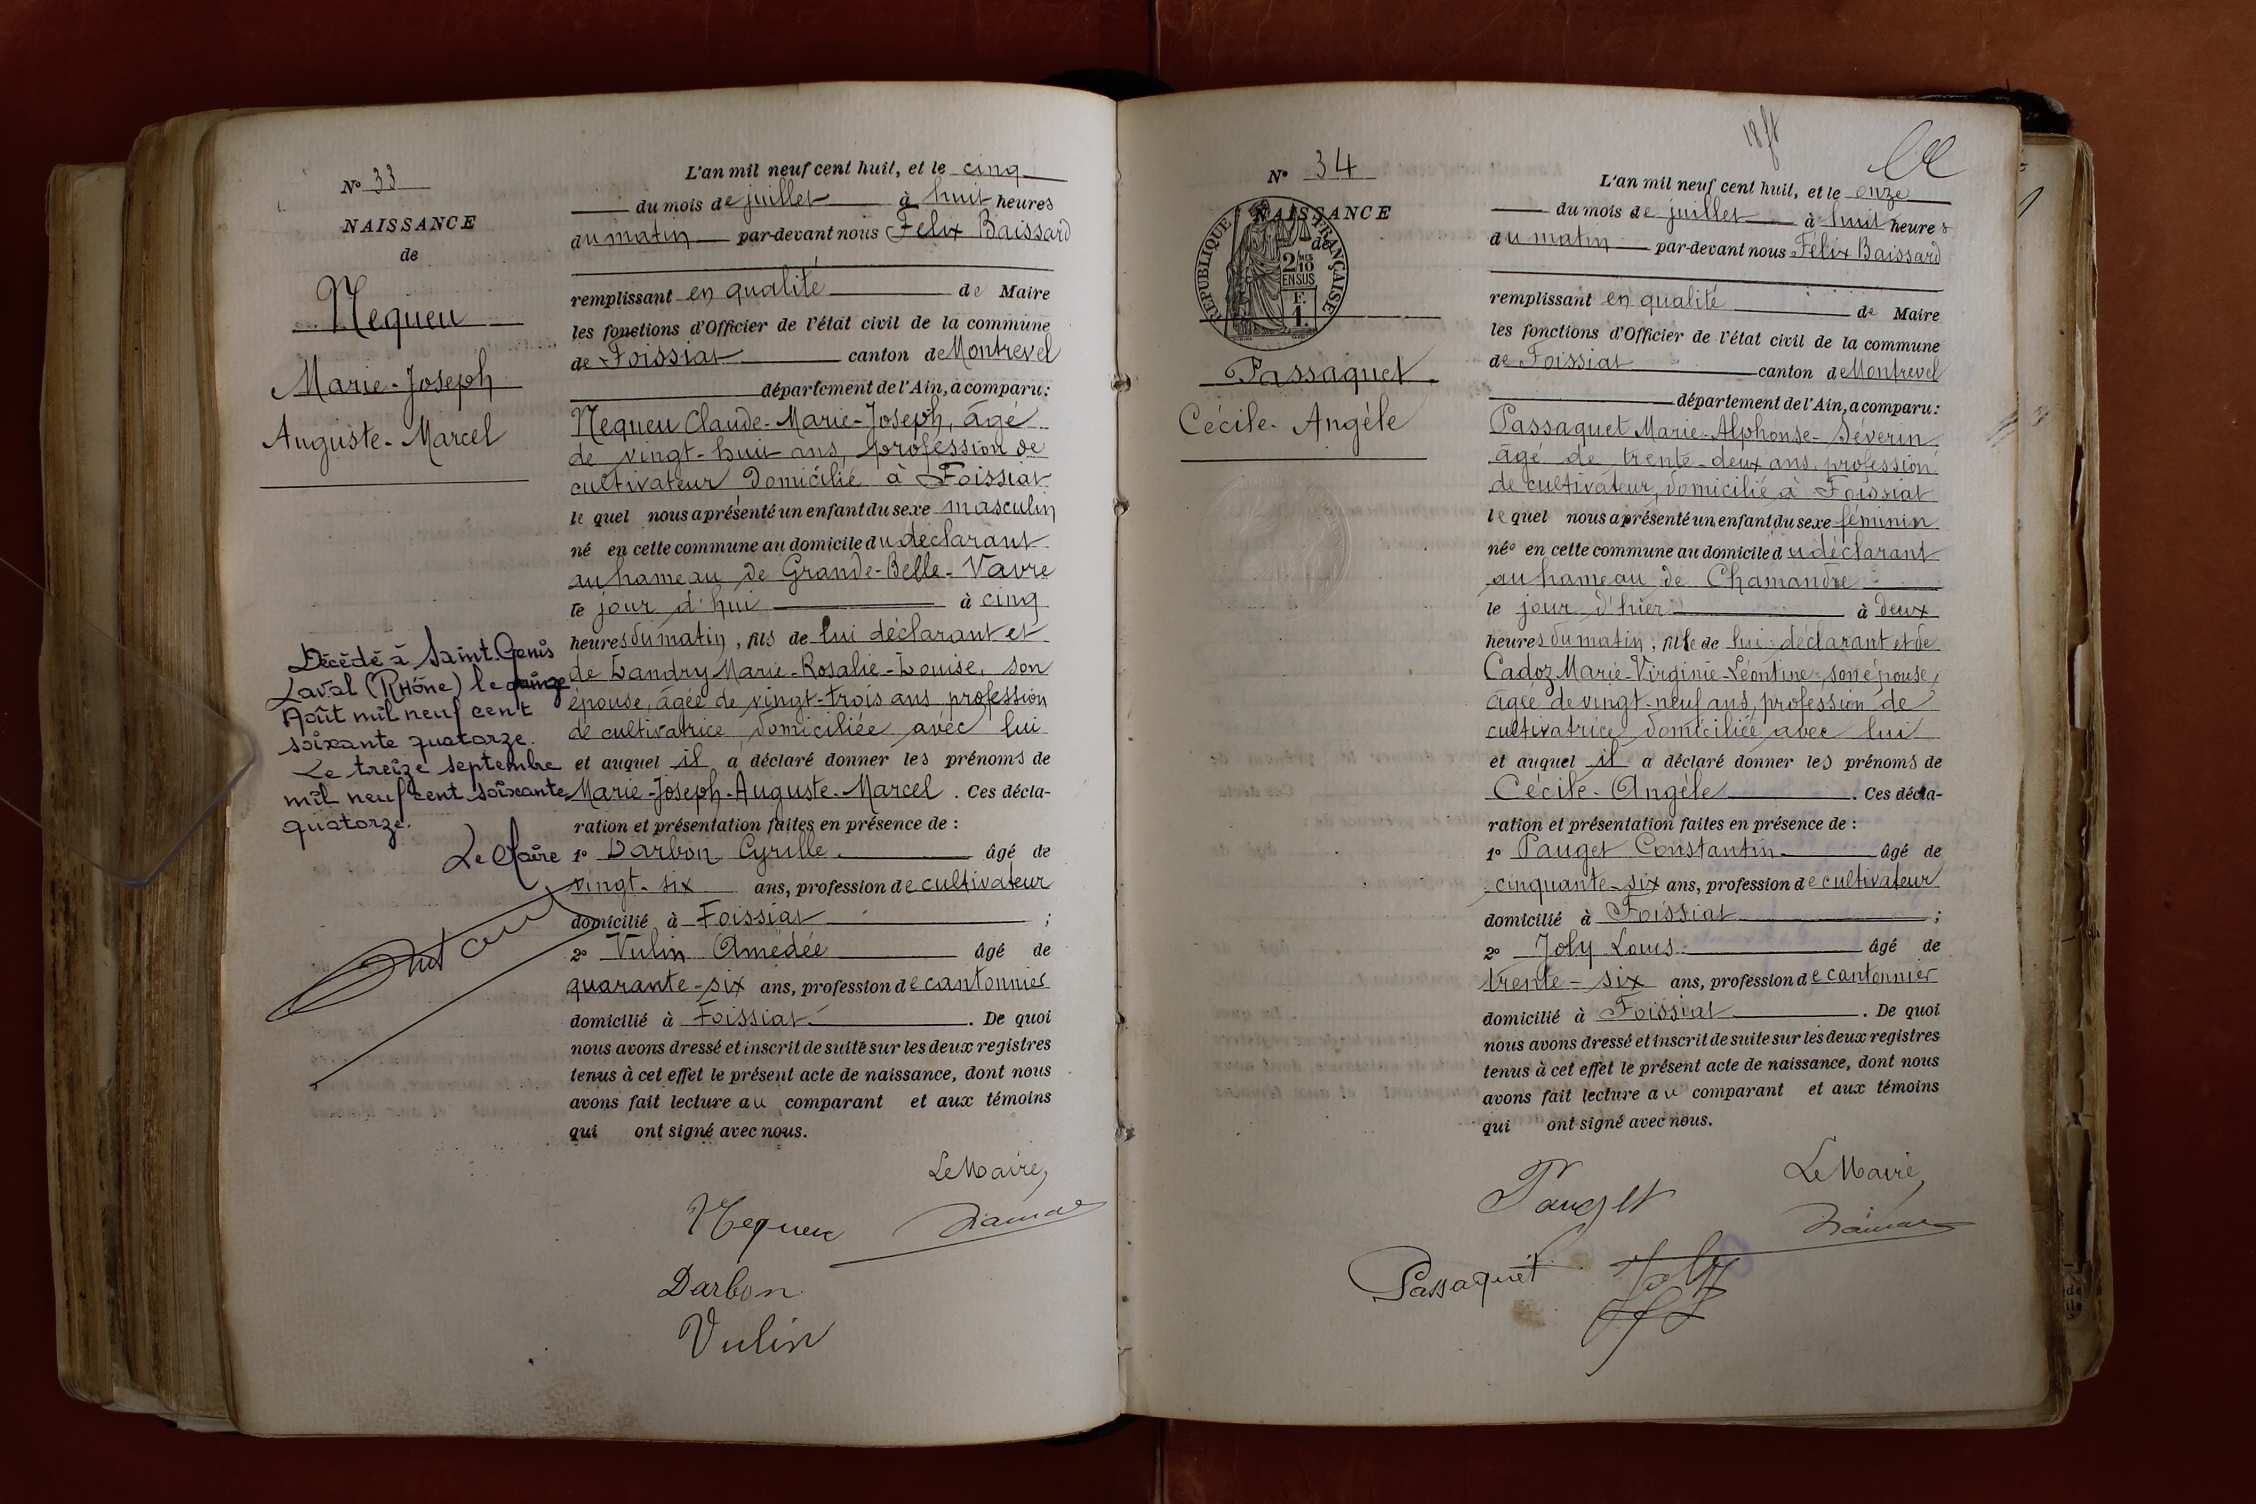 N° 33
NAISSANCE
de
Nequeu
Marie-Joseph
Auguste-Marcel
Décédé à Saint.Genis
Laval (Rhône) le
Août mil neuf cent
soixante quatorze.
Le treize septembre
mil neuf cent soixante
quatorze.
Le Maire
L'an mil neuf cent huit, et le cinq
du mois de juillet à huit heures
du matin par-devant nous Félix Baissard
remplissant en qualité de Maire
les fonctions d'Officier de l'état civil de la commune
de Foissiat canton de Montrevel
département de l'Ain, a comparu:
Nequeu Claude-Marie-Joseph, âgé
de vingt-huit ans, profession de
cultivateur domicilié à Foissiat
lequel nous a présenté un enfant du sexe masculin
né en cette commune au domicile du déclarant
au hameau de Grande-Belle-Vavre
le jour d'hui à cinq
heures du matin, fils de lui déclarant et
de Landry Marie-Rosalie-Louise, son
épouse, âgée de vingt-trois ans profession
de cultivatrice domiciliée avec lui
et auquel il a déclaré donner les prénoms de
Marie-Joseph-Auguste-Marcel. Ces décla-
ration et présentation faites en présence de :
1° Darbon Cyrille âgé de
vingt-six ans, profession de cultivateur
domicilié à Foissiat ;
2° Vulin Amédée âgé de
quarante-six ans, profession de cantonnier
domicilié à Foissiat. De quoi
nous avons dressé et inscrit de suite sur les deux registres
tenus à cet effet le présent acte de naissance, dont nous
avons fait lecture au comparant et aux témoins
qui ont signé avec nous.
Le Maire,
Nequeu
Darbon
Vulin
N° 34
NAISSANCE
de
RÉPUBLIQUE FRANÇAISE
2/10
EN SUS
F.
1.
Passaquet
Cécile-Angèle
L'an mil neuf cent huit, et le onze
du mois de juillet à huit heures
du matin par-devant nous Félix Baissard
remplissant en qualité de Maire
les fonctions d'Officier de l'état civil de la commune
de Foissiat canton de Montrevel
département de l'Ain, a comparu:
Passaquet Marie-Alphonse-Séverin
âgé de trente-deux ans, profession
de cultivateur, domicilié à Foissiat
lequel nous a présenté un enfant du sexe féminin
née en cette commune au domicile du déclarant
au hameau de Chamandre
le jour d'hier à deux
heures du matin, fille de lui déclarant et de
Cadoz Marie-Virginie-Léontine, son épouse,
âgée de vingt-neuf ans, profession de
cultivatrice domiciliée avec lui
et auquel il a déclaré donner les prénoms de
Cécile-Angèle. Ces décla-
ration et présentation faites en présence de :
1° Pauget Constantin âgé de
cinquante-six ans, profession de cultivateur
domicilié à Foissiat ;
2° Joly Louis âgé de
trente-six ans, profession de cantonnier
domicilié à Foissiat. De quoi
nous avons dressé et inscrit de suite sur les deux registres
tenus à cet effet le présent acte de naissance, dont nous
avons fait lecture au comparant et aux témoins
qui ont signé avec nous.
Pauget
Le Maire,
Passaquet
Joly